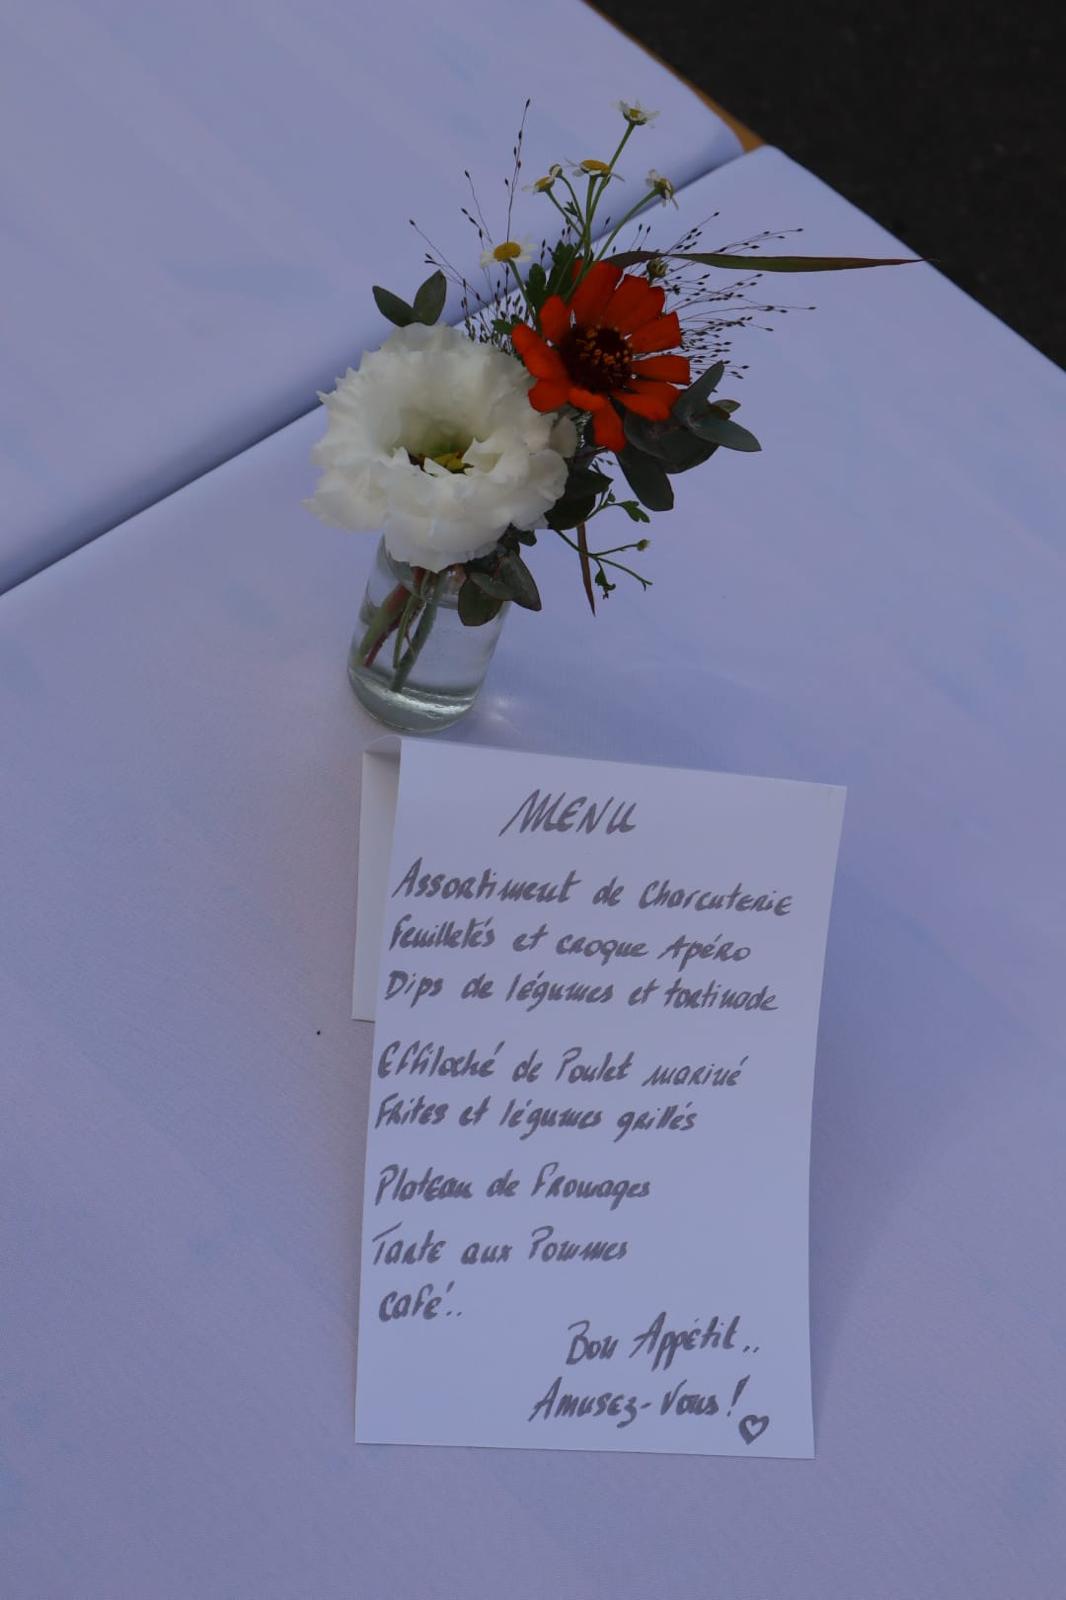 MENU
Assortiment de Charcuterie
Feuilletés et croque Apéro
Dips de légumes et tortinade
Effiloché de Poulet mariné
Frites et légumes grillés
Plateau de Fromages
Tarte aux Pommes
Café..
Bon Appétit..
Amusez-Vous !